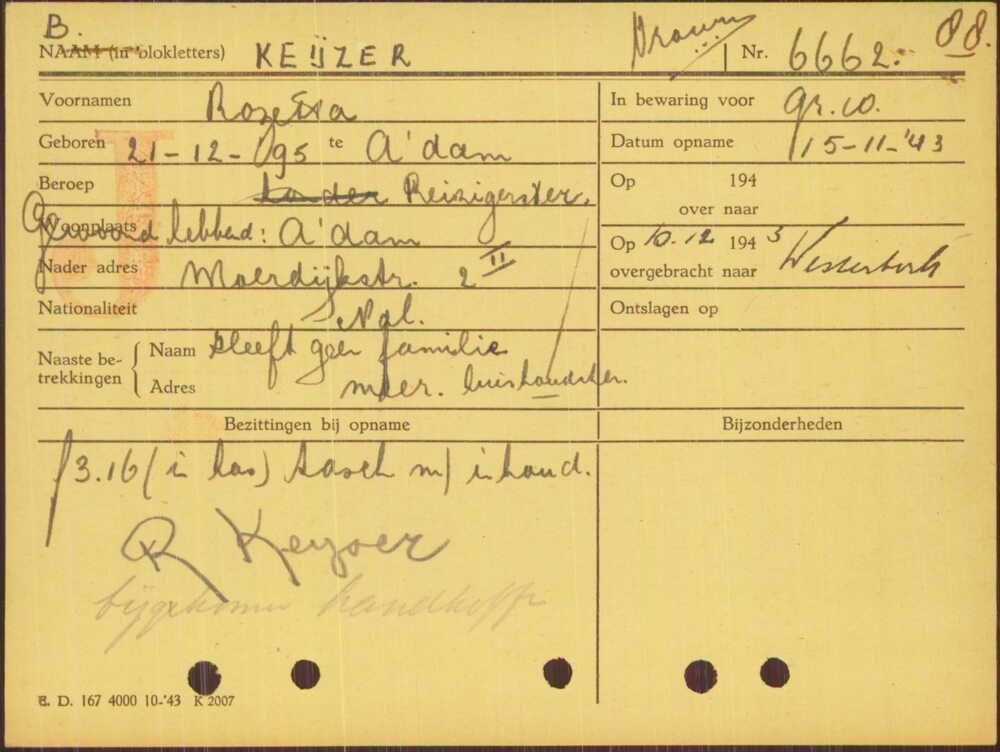 B. Vrouw 88.
NAAM (in blokletters) KEIJZER Nr. 6662.
Voornamen Rozetta
In bewaring voor gr. 10.
Geboren 21-12-'95 te A'dam
Datum opname 15-11-'43
Beroep Reizigerster.
Op 194
over naar
Woonplaats Gewoond hebbend: A'dam
Op 10.12 1943
overgebracht naar Westerbork
Nader adres Moerdijkstr. 2 II
Nationaliteit Ned.
Ontslagen op
Naaste betrekkingen
Naam Heeft geen familie
Adres meer. huishoudster.
Bezittingen bij opname
Bijzonderheden
f 3.16 (in kas) tasch m/ inhoud.
R Keyzer
bijgekomen handkoffer
E. D. 167 4000 10-'43 K 2007
J